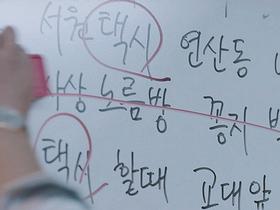 서원 택시 연산동
사상 노름방 꽁지
택시 할때 교대앞